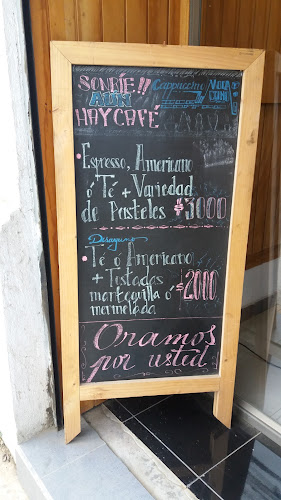 SONRÍE!!
AUN
HAY CAFÉ
Cappuccino
Espresso, Americano
ó Té + Variedad
de Pasteles $3000
Desayuno
Té ó Americano
+ Tostadas $2000
mantequilla ó
mermelada
Oramos
por usted